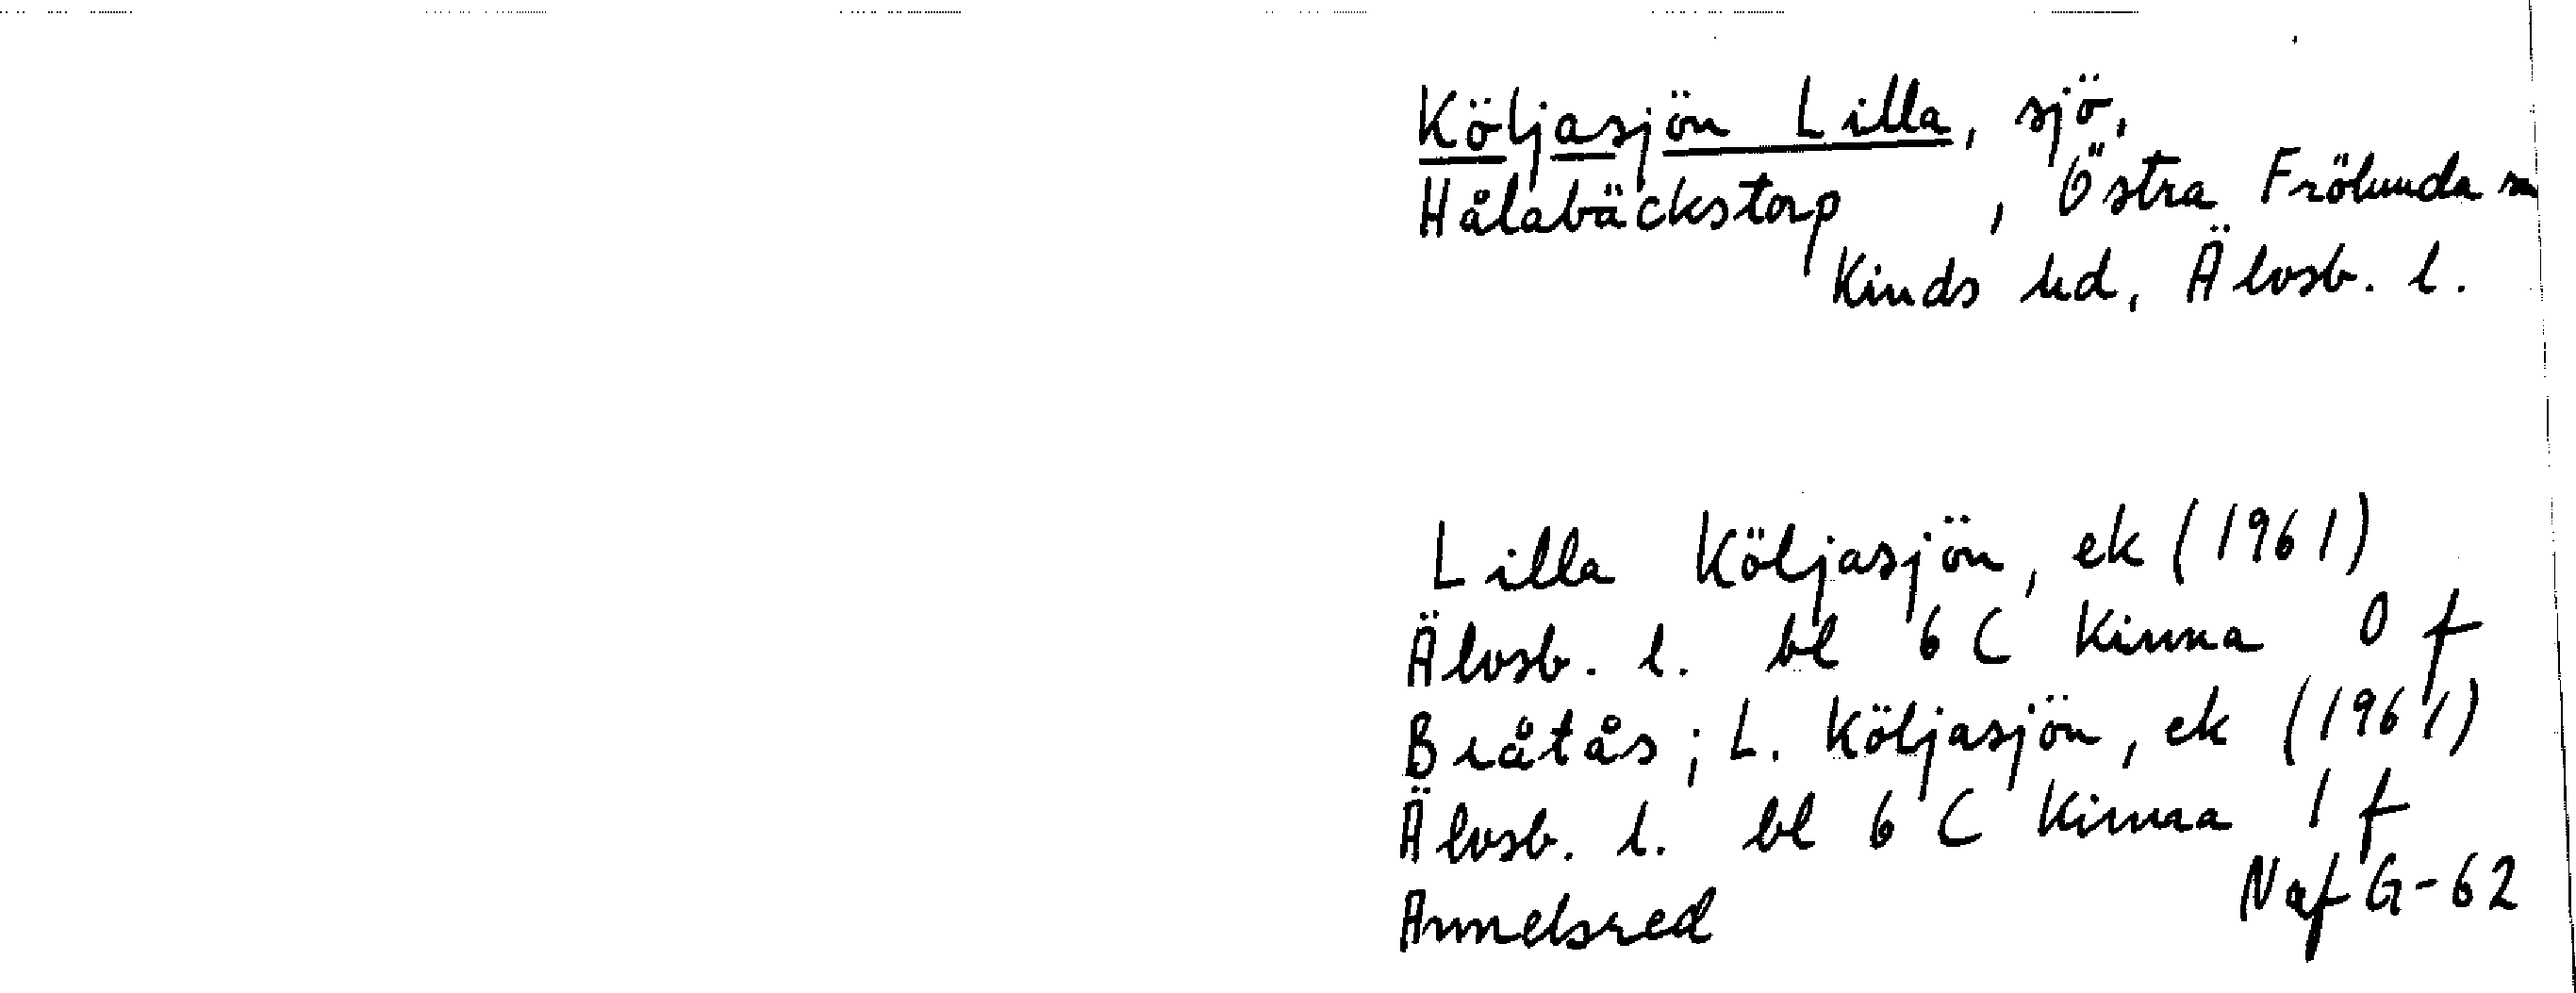 Köljasjön Lilla, sjö,
Hålabäckstorp , Östra Frölunda sn
Kinds hd, Älvsb. l.
Lilla Köljasjön, ek (1961)
Älvsb. l. bl 6 C Kinna 0 f
Bråtås; L. Köljasjön, ek (1961)
Älvsb. l. bl 6 C Kinna 1 f
Ammelsred NafG-62